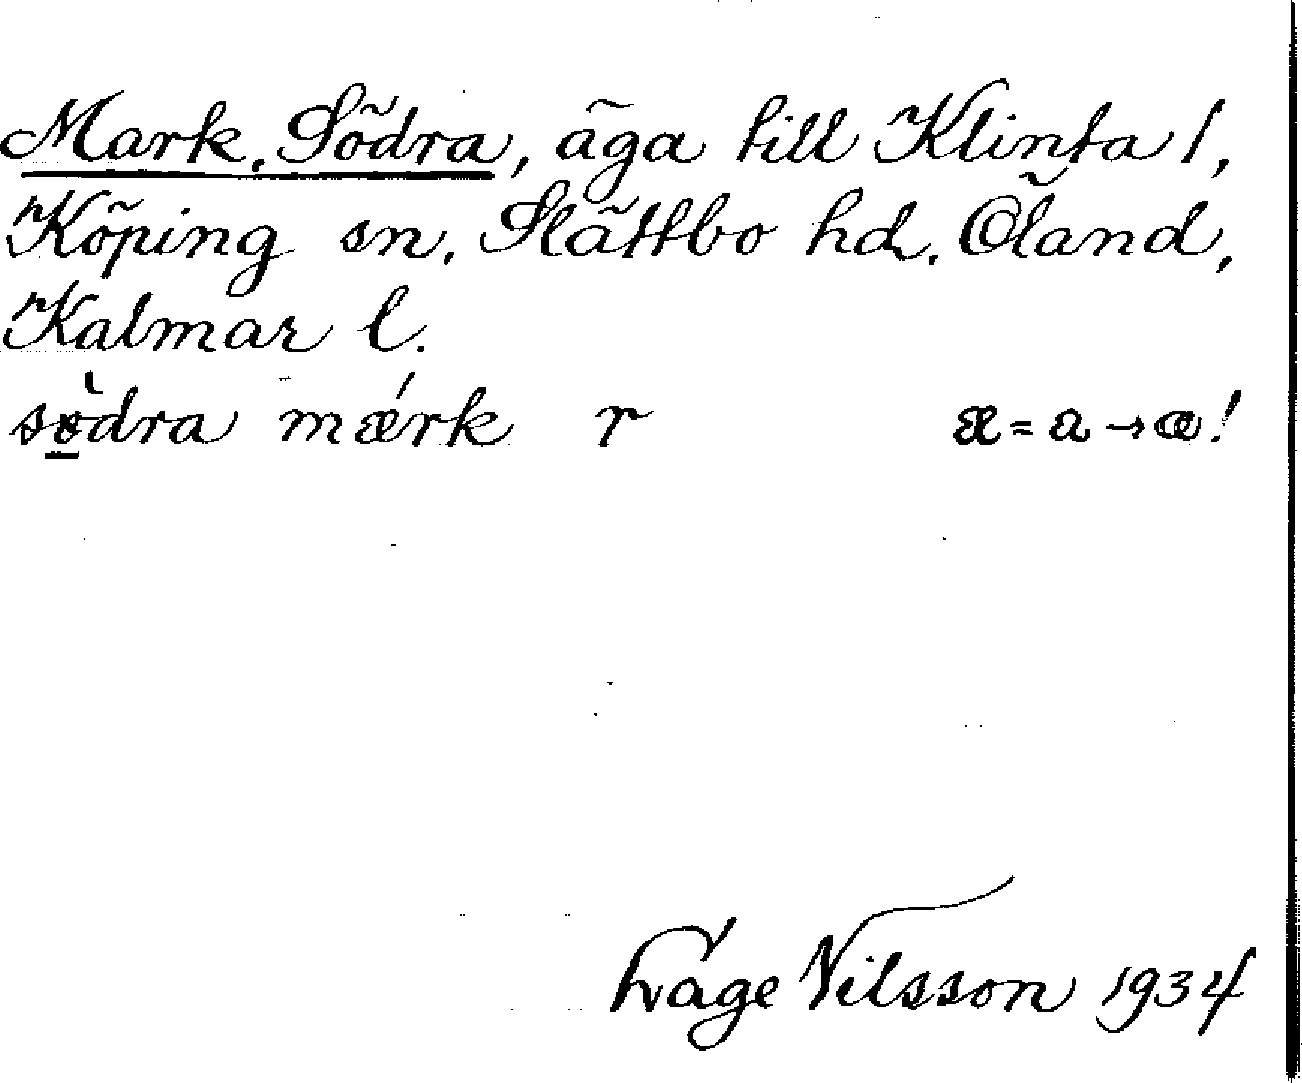 Mark, Södra, äga till Klinta 1,
Köping sn. Slättbo hd. Öland,
Kalmar l.
sö̀dra mǽrk r æ = a → æ!
Nilsson 1934